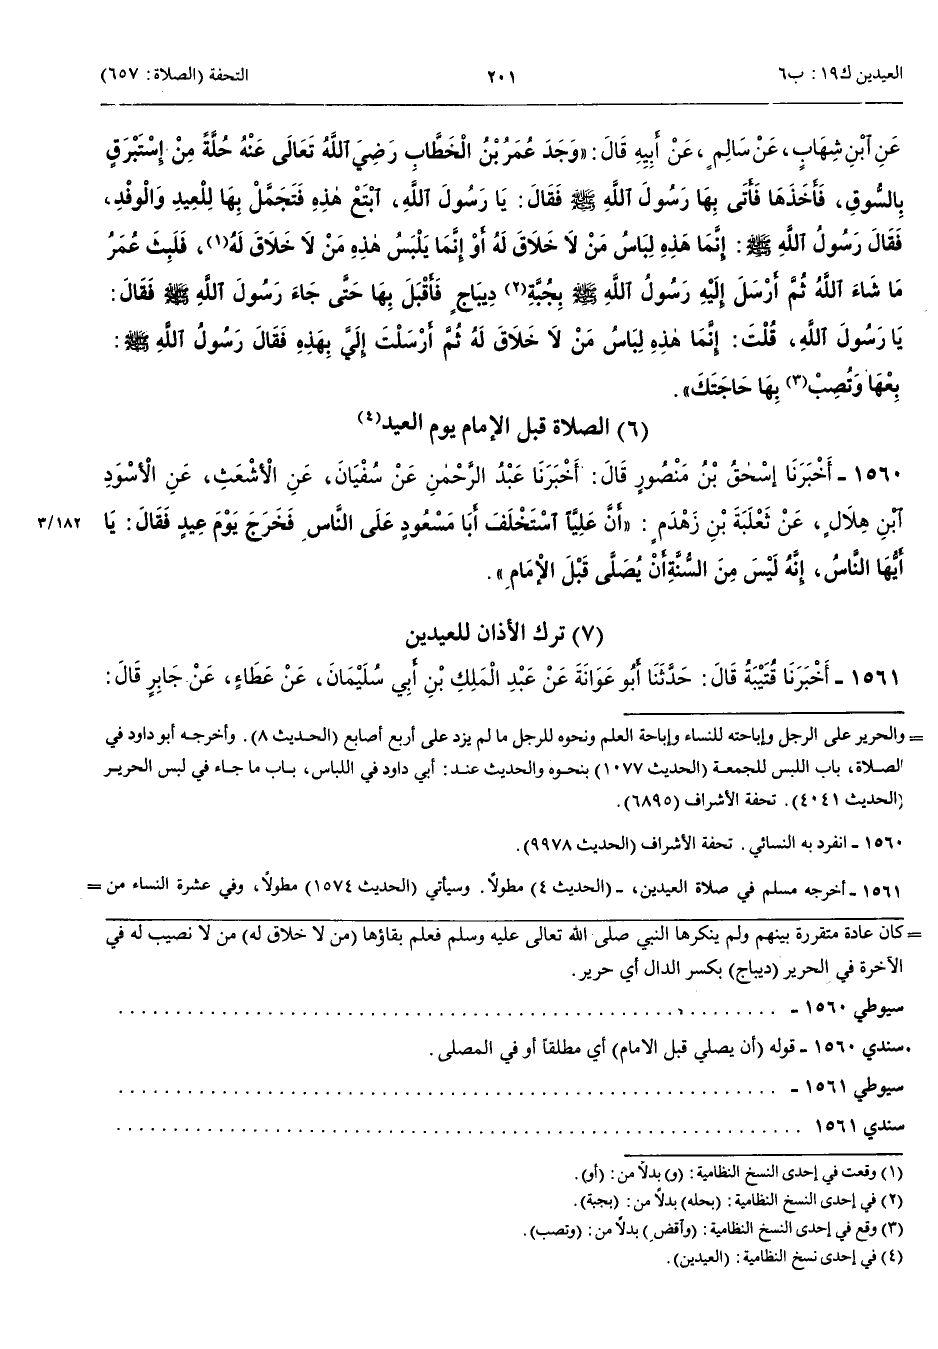 العيدين ك١٩: ب٦ ٢٠١ التحفة (الصلاة: ٦٥٧)
عَنِ ٱبْنِ شِهَابٍ، عَنْ سَالِمٍ، عَنْ أَبِيهِ قَالَ: «وَجَدَ عُمَرُ بْنُ الْخَطَّابِ رَضِيَ ٱللَّهُ تَعَالَى عَنْهُ حُلَّةً مِنْ إِسْتَبْرَقٍ
بِالسُّوقِ، فَأَخَذَهَا فَأَتَى بِهَا رَسُولَ ٱللَّهِ ﷺ فَقَالَ: يَا رَسُولَ ٱللَّهِ، ٱبْتَعْ هٰذِهِ فَتَجَمَّلْ بِهَا لِلْعِيدِ وَالْوَفْدِ،
فَقَالَ رَسُولُ ٱللَّهِ ﷺ: إِنَّمَا هَذِهِ لِبَاسُ مَنْ لَا خَلَاقَ لَهُ أَوْ إِنَّمَا يَلْبَسُ هٰذِهِ مَنْ لَا خَلَاقَ لَهُ(١)، فَلَبِثَ عُمَرُ
مَا شَاءَ ٱللَّهُ ثُمَّ أَرْسَلَ إِلَيْهِ رَسُولُ ٱللَّهِ ﷺ بِجُبَّةِ(٢) دِيبَاجٍ فَأَقْبَلَ بِهَا حَتَّى جَاءَ رَسُولَ ٱللَّهِ ﷺ فَقَالَ:
يَا رَسُولَ ٱللَّهِ، قُلْتَ: إِنَّمَا هٰذِهِ لِبَاسُ مَنْ لَا خَلَاقَ لَهُ ثُمَّ أَرْسَلْتَ إِلَيَّ بِهَذِهِ فَقَالَ رَسُولُ ٱللَّهِ ﷺ:
بِعْهَا وَتُصِبْ(٣) بِهَا حَاجَتَكَ».
(٦) الصلاة قبل الإمام يوم العيد(٤)
١٥٦٠ ـ أَخْبَرَنَا إِسْحٰقُ بْنُ مَنْصُورٍ قَالَ: أَخْبَرَنَا عَبْدُ الرَّحْمٰنِ عَنْ سُفْيَانَ، عَنِ الْأَشْعَثِ، عَنِ الْأَسْوَدِ
ٱبْنِ هِلَالٍ، عَنْ ثَعْلَبَةَ بْنِ زَهْدَمٍ: «أَنَّ عَلِيًّا ٱسْتَخْلَفَ أَبَا مَسْعُودٍ عَلَى النَّاسِ فَخَرَجَ يَوْمَ عِيدٍ فَقَالَ: يَا ٣/١٨٢
أَيُّهَا النَّاسُ، إِنَّهُ لَيْسَ مِنَ السُّنَّةِ أَنْ يُصَلَّى قَبْلَ الْإِمَامِ».
(٧) ترك الأذان للعيدين
١٥٦١ ـ أَخْبَرَنَا قُتَيْبَةُ قَالَ: حَدَّثَنَا أَبُو عَوَانَةَ عَنْ عَبْدِ الْمَلِكِ بْنِ أَبِي سُلَيْمَانَ، عَنْ عَطَاءٍ، عَنْ جَابِرٍ قَالَ:
= والحرير على الرجل وإباحته للنساء وإباحة العلم ونحوه للرجل ما لم يزد على أربع أصابع (الحديث ٨). وأخرجه أبو داود في
الصلاة، باب اللبس للجمعة (الحديث ١٠٧٧) بنحوه والحديث عند: أبي داود في اللباس، باب ما جاء في لبس الحرير
(الحديث ٤٠٤١). تحفة الأشراف (٦٨٩٥).
١٥٦٠ ـ انفرد به النسائي. تحفة الأشراف (الحديث ٩٩٧٨).
١٥٦١ ـ أخرجه مسلم في صلاة العيدين، ـ (الحديث ٤) مطولاً. وسيأتي (الحديث ١٥٧٤) مطولاً، وفي عشرة النساء من =
= كان عادة متقررة بينهم ولم ينكرها النبي صلى الله تعالى عليه وسلم فعلم بقاؤها (من لا خلاق له) من لا نصيب له في
الآخرة في الحرير (ديباج) بكسر الدال أي حرير.
سيوطي ١٥٦٠ ـ ........................................................
سندي ١٥٦٠ ـ قوله (أن يصلي قبل الامام) أي مطلقاً أو في المصلى.
سيوطي ١٥٦١ ـ ........................................................
سندي ١٥٦١ ........................................................
(١) وقعت في إحدى النسخ النظامية: (و) بدلاً من: (أو).
(٢) في إحدى النسخ النظامية: (بحله) بدلاً من: (بجبة).
(٣) وقع في إحدى النسخ النظامية: (وآقض) بدلاً من: (وتصب).
(٤) في إحدى نسخ النظامية: (العيدين).